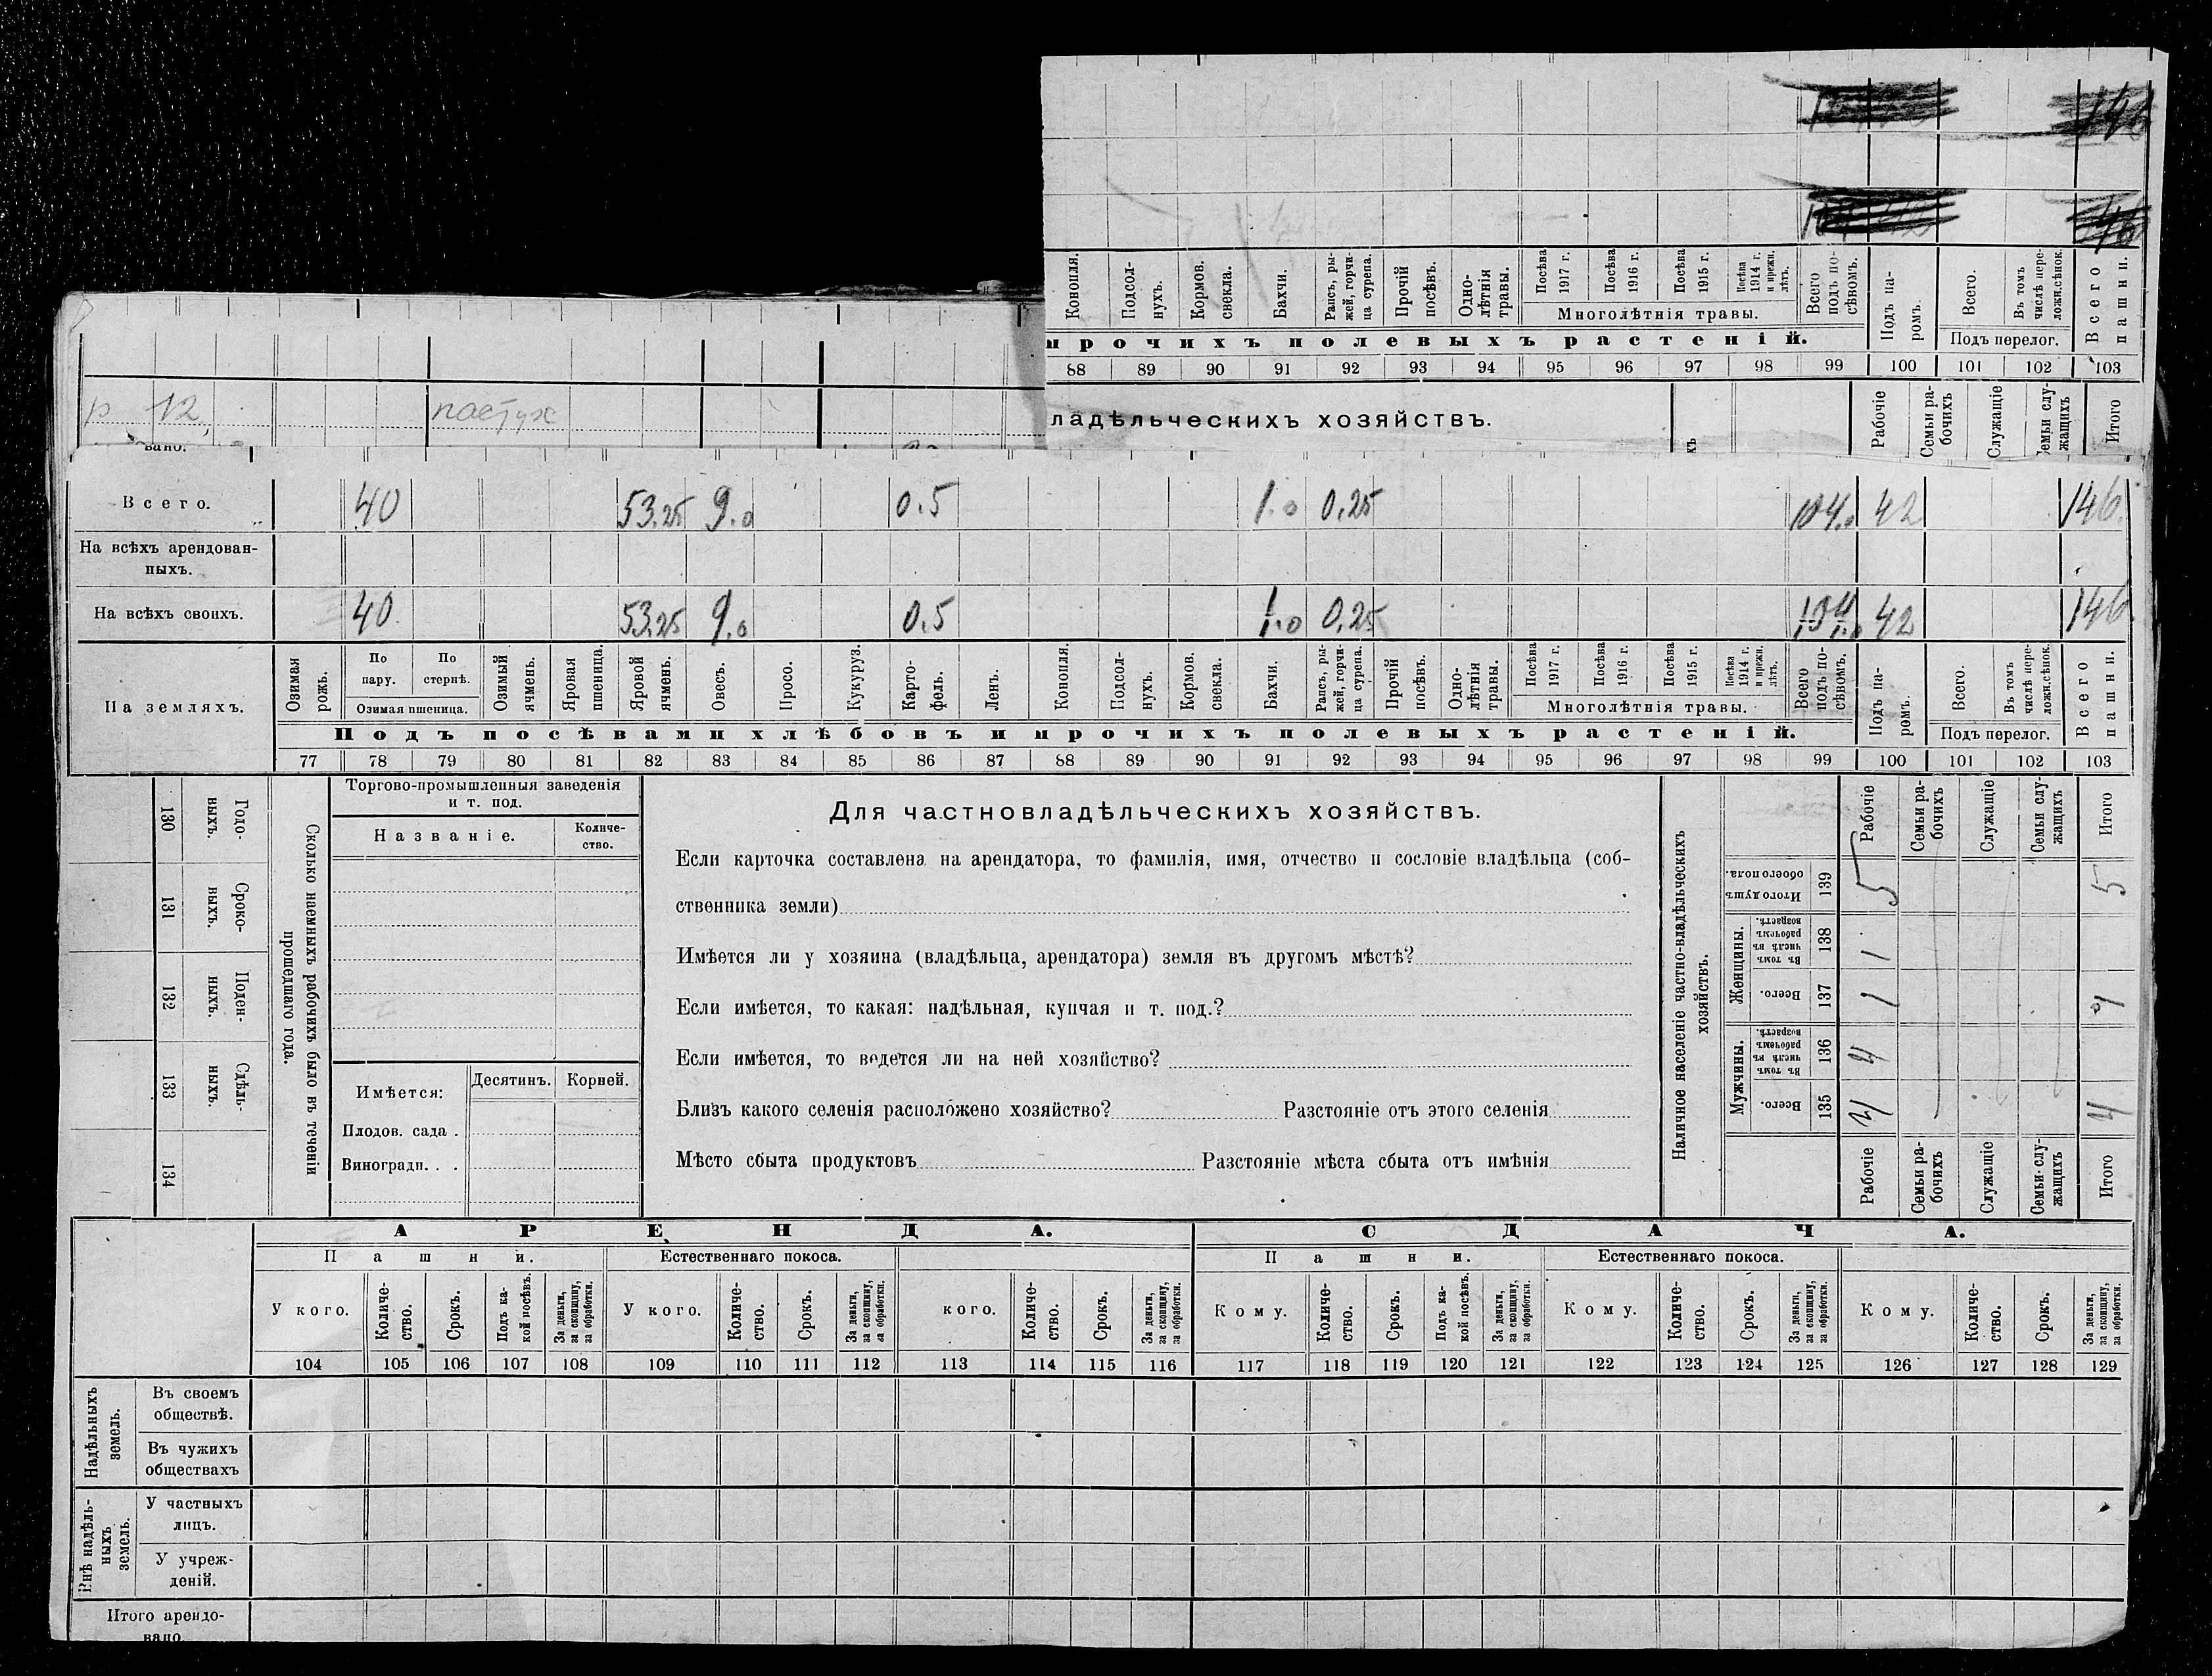 146
46
Конопля. Подсолнухъ. Кормов. свекла. Бахчи. Рапсъ, рыжей, горчица сурепа. Прочій посѣвъ. Однолѣтнія травы. Посѣва 1917 г. Посѣва 1916 г. Посѣва 1915 г. Посѣва 1914 г. и прежн. лѣтъ. Всего подъ посѣвомъ. Подъ паромъ. Всего. Въ томъ числѣ переложн. сѣнок. Всего пашни.
Многолѣтнія травы.
прочихъ полевыхъ растеній. Подъ перелог.
88 89 90 91 92 93 94 95 96 97 98 99 100 101 102 103
р 12, пастух
ладѣльческихъ хозяйствъ. хъ Рабочіе Семьи рабочихъ Служащіе Семьи служащихъ Итого
вано.
Всего. 40 53.25 9.0 0.5 1.0 0,25 104.0 42 146.
На всѣхъ арендованныхъ.
На всѣхъ своихъ. 40 53.25 9.0 0.5 1.0 0,25 42 146
На земляхъ. Озимая рожь. По пару. По стернѣ. Озимая пшеница. Озимый ячмень. Яровая пшеница. Яровой ячмень. Овесъ. Просо. Кукуруз. Картофель. Ленъ. Конопля. Подсолнухъ. Кормов. свекла. Бахчи. Рапсъ, рыжей, горчица сурепа. Прочій посѣвъ. Однолѣтнія травы. Посѣва 1917 г. Посѣва 1916 г. Посѣва 1915 г. Посѣва 1914 г. и прежн. лѣтъ. Многолѣтнія травы. Всего подъ посѣвомъ. Подъ паромъ. Всего. Въ томъ числѣ переложн. сѣнок. Всего пашни.
Подъ посѣвами хлѣбовъ и прочихъ полевыхъ растеній. Подъ перелог.
77 78 79 80 81 82 83 84 85 86 87 88 89 90 91 92 93 94 95 96 97 98 99 100 101 102 103
130 Годовыхъ.
131 Сроковыхъ.
132 Поденныхъ.
133 Сдѣльныхъ.
134
Сколько наемныхъ рабочихъ было въ теченіи прошедшаго года.
Торгово-промышленныя заведенія
и т. под.
Названіе. Количество.
Имѣется: Десятинъ. Корней.
Плодов. сада .
Виноградн. . .
Для частновладѣльческихъ хозяйствъ.
Если карточка составлена на арендатора, то фамилія, имя, отчество и сословіе владѣльца (соб-
ственника земли)
Имѣется ли у хозяина (владѣльца, арендатора) земля въ другомъ мѣстѣ?
Если имѣется, то какая: надѣльная, купчая и т. под.?
Если имѣется, то ведется ли на ней хозяйство?
Близъ какого селенія расположено хозяйство? Разстояніе отъ этого селенія
Мѣсто сбыта продуктовъ Разстояніе мѣста сбыта отъ имѣнія
Наличное населеніе частно-владѣльческихъ хозяйствъ.
Рабочіе Семьи рабочихъ Служащіе Семьи служащихъ Итого
Итого душъ обоего пола. 139 5 5
Женщины. Въ томъ числѣ въ рабочемъ возрастѣ. 138 1
Всего. 137 1
Мужчины. Въ томъ числѣ въ рабочемъ возрастѣ. 136 4
Всего. 135 4 4
Рабочіе Семьи рабочихъ Служащіе Семьи служащихъ Итого
АРЕНДА. СДАЧА.
Пашни. Естественнаго покоса. Пашни. Естественнаго покоса.
У кого. Количество. Срокъ. Подъ какой посѣвъ. За деньги, за скопщину, за обработки. У кого. Количество. Срокъ. За деньги, за скопщину, за обработки. кого. Количество. Срокъ. За деньги, за скопщину, за обработки. Кому. Количество. Срокъ. Подъ какой посѣвъ. За деньги, за скопщину, за обработки. Кому. Количество. Срокъ. За деньги, за скопщину, за обработки. Кому. Количество. Срокъ. За деньги, за скопщину, за обработки.
104 105 106 107 108 109 110 111 112 113 114 115 116 117 118 119 120 121 122 123 124 125 126 127 128 129
Надѣльныхъ земель.
Въ своемъ
обществѣ.
Въ чужихъ
обществахъ
Внѣ надѣльныхъ земель.
У частныхъ
лицъ.
У учреж-
деній.
Итого арендо-
вано.